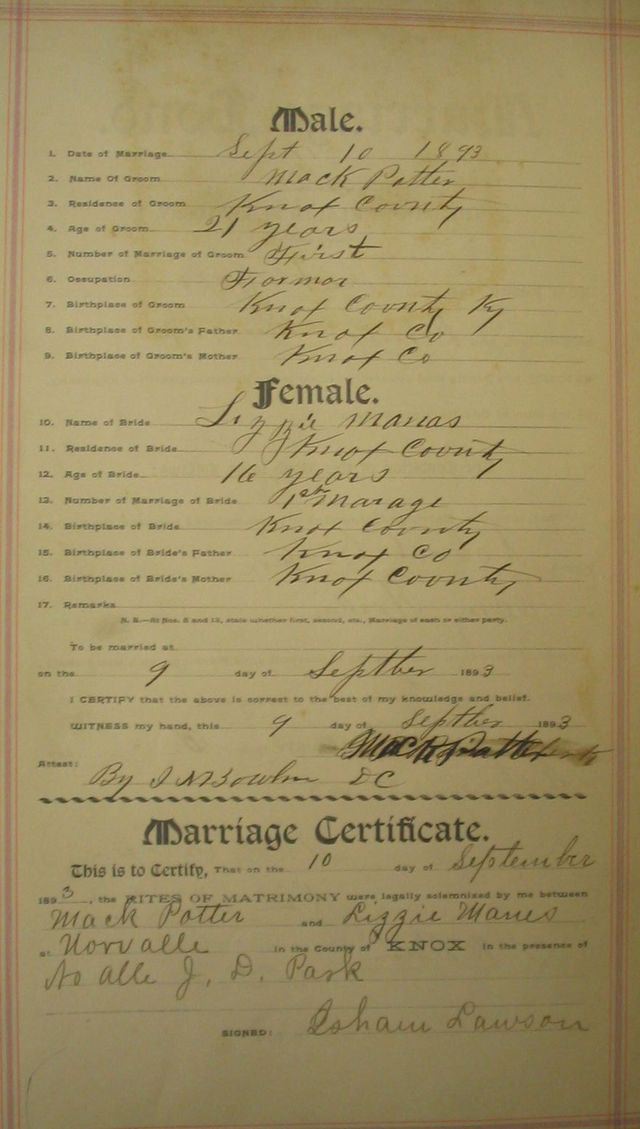 Male.
1. Date of Marriage Sept 10 1893
2. Name Of Groom Mack Potter
3. Residence of Groom Knox County
4. Age of Groom 21 years
5. Number of Marriage of Groom First
6. Occupation Formor
7. Birthplace of Groom Knox County Ky
8. Birthplace of Groom's Father Knox Co
9. Birthplace of Groom's Mother Knox Co
Female.
10. Name of Bride Lizzie Manas
11. Residence of Bride Knox County
12. Age of Bride 16 years
13. Number of Marriage of Bride 1st Marage
14. Birthplace of Bride Knox County
15. Birthplace of Bride's Father Knox Co
16. Birthplace of Bride's Mother Knox County
17. Remarks
N. B.—At Nos. 5 and 13, state whether first, second, etc., Marriage of each or either party.
To be married at
on the 9 day of Septber 1893
I CERTIFY that the above is correct to the best of my knowledge and belief.
WITNESS my hand, this 9 day of Septber 1893
Mack Potter
Attest:
By DC
Marriage Certificate.
This is to Certify, That on the 10 day of September
1893, the RITES OF MATRIMONY were legally solemnized by me between
Mack Potter and Lizzie Manes
at in the County of KNOX in the presence of
J. D. Park
SIGNED: Isham Lawson